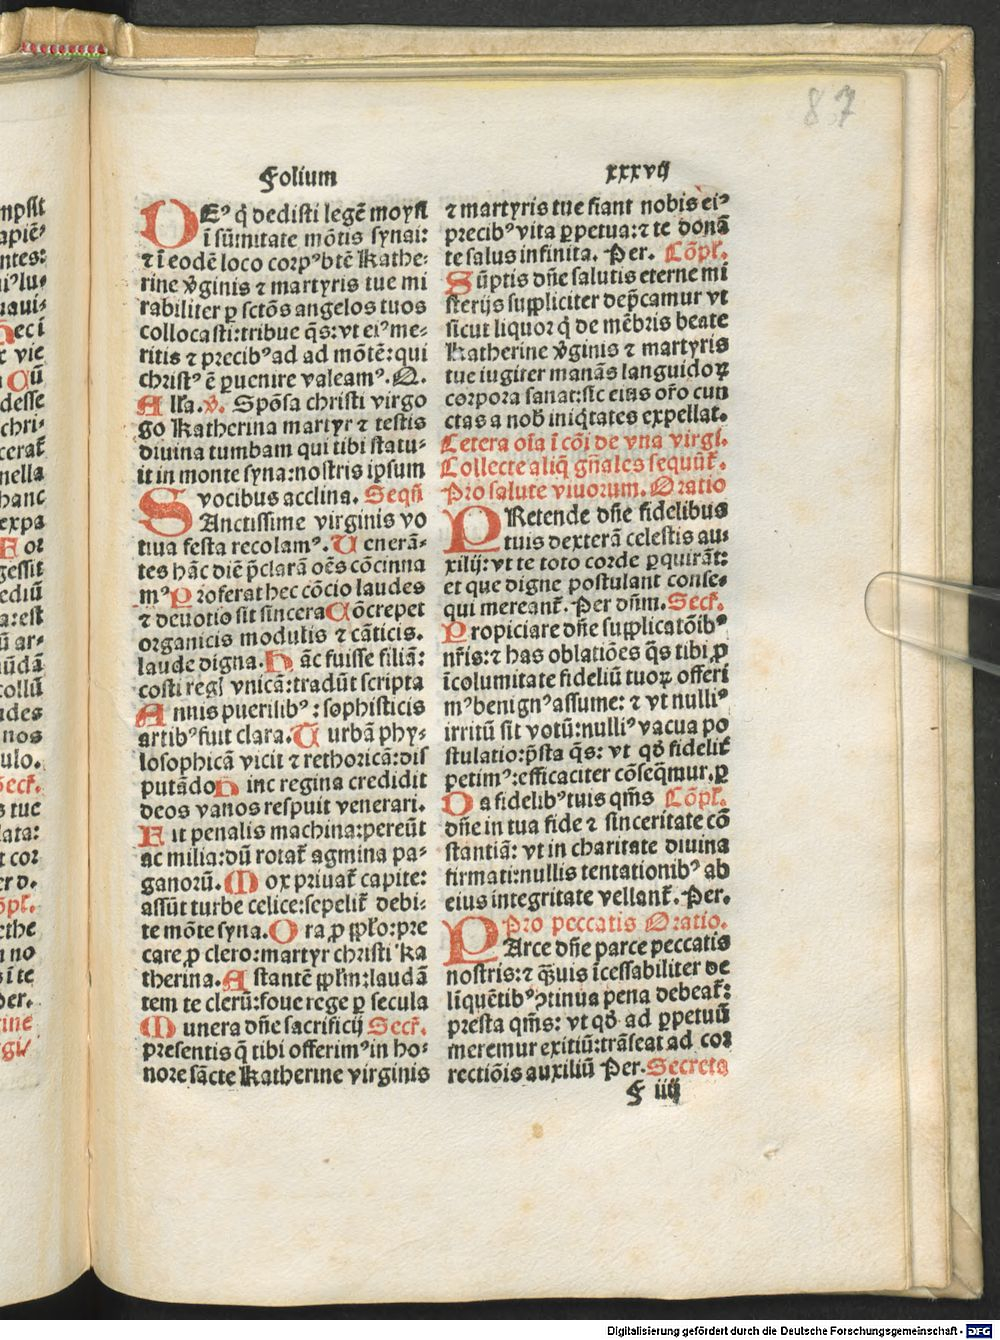 87
Folium xxxvij
DEꝰ q̇ dedisti legē moysi
ī sūmitate mōtis synai:
⁊ ī eodē loco corpꝰ btē Kathe⸗
rine v̇ginis ⁊ martyris tue mi
rabiliter ꝑ sctōs angelos tuos
collocasti: tribue q̄s: vt eiꝰ me⸗
ritis ⁊ precibꝰ ad ad mōtē: qui
christꝰ ē ꝑuenire valeamꝰ. Q.
Alła. v̇. Spōsa christi virgo
go Katherina martyr ⁊ testis
diuina tumbam qui tibi statu⸗
it in monte syna: nostris ipsum
vocibus acclina. Seqūt
SAnctissime virginis vo
tiua festa recolamꝰ. Uenerā⸗
tes hāc diē p̄clarā oēs cōcinna
mꝰ Proferat hec cōcio laudes
⁊ deuotio sit sincera Cōcrepet
organicis modulis ⁊ cāticis.
laude digna. Hāc fuisse filiā:
costi regl vnicā: tradūt scripta
Annis puerilibꝰ: sophisticis
artibꝰ fuit clara. Urbā phy⸗
losophicā vicit ⁊ rethoricā: dis
putādo Hinc regina credidit
deos vanos respuit venerari.
Fit penalis machina: pereūt
ac milia: dū rotat̄ agmina pa⸗
ganorū. Mox priuat̄ capite:
assūt turbe celice: sepelit̄ debi⸗
te mōte syna. Ora ꝓ ꝓp̄lo: pre
care ꝓ clero: martyr christi Ka
therina. Astantē ꝓp̄lm: laudā
tem te clerū: foue rege ꝑ secula
Munera dn̄e sacrificij Secr̄.
presentis q̄ tibi offerimꝰ in ho⸗
nore sācte Katherine virginis
⁊ martyris tue fiant nobis eiꝰ
precibꝰ vita ꝑpetua: ⁊ te donā
te salus infinita. Per. Cōpl̄.
Sūptis dn̄e salutis eterne mi
sterijs suppliciter dep̄camur vt
sicut liquor q̇ de mēbris beate
Katherine v̇ginis ⁊ martyris
tue iugiter manās languidoꝝ
corpora sanat: sic eius or̄o cun
ctas a nob̄ iniq̇tates expellat.
Cetera oīa ī cōi de vna virgi.
Collecte aliq̄ gn̄ales sequūt̄.
Pro salute viuorum. Oratio
PRetende dn̄e fidelibus
tuis dexterā celestis au⸗
xilij: vt te toto corde ꝑquirāt:
et que digne postulant conse⸗
qui mereant̄. Per dn̄m. Secr̄.
Propiciare dn̄e supplicatōibꝰ
nr̄is: ⁊ has oblatiōes q̄s tibi ꝓ
īcolumitate fideliū tuoꝝ offeri
mꝰ benignꝰ assume: ⁊ vt nulliꝰ
irritū sit votū: nulliꝰ vacua po
stulatio: p̄sta q̄s: vt qd̄ fidelit̄
petimꝰ: efficaciter cōseq̄mur. ꝑ
Da fidelibꝰ tuis qm̄s Cōpl̄.
dn̄e in tua fide ⁊ sinceritate cō
stantiā: vt in charitate diuina
firmati: nullis tentationibꝰ ab
eius integritate vellant̄. Per.
Pro peccatis Oratio.
PArce dn̄e parce peccatis
nostris: ⁊ q̄uis īcessabiliter de
linquētibꝰ ꝯtinua pena debeat̄:
presta qm̄s: vt qd̄ ad ꝑpetuū
meremur exitiū: trāseat ad cor
rectiōis auxiliū Per. Secreta
F iiij
Digitalisierung gefördert durch die Deutsche Forschungsgemeinschaft - DFG